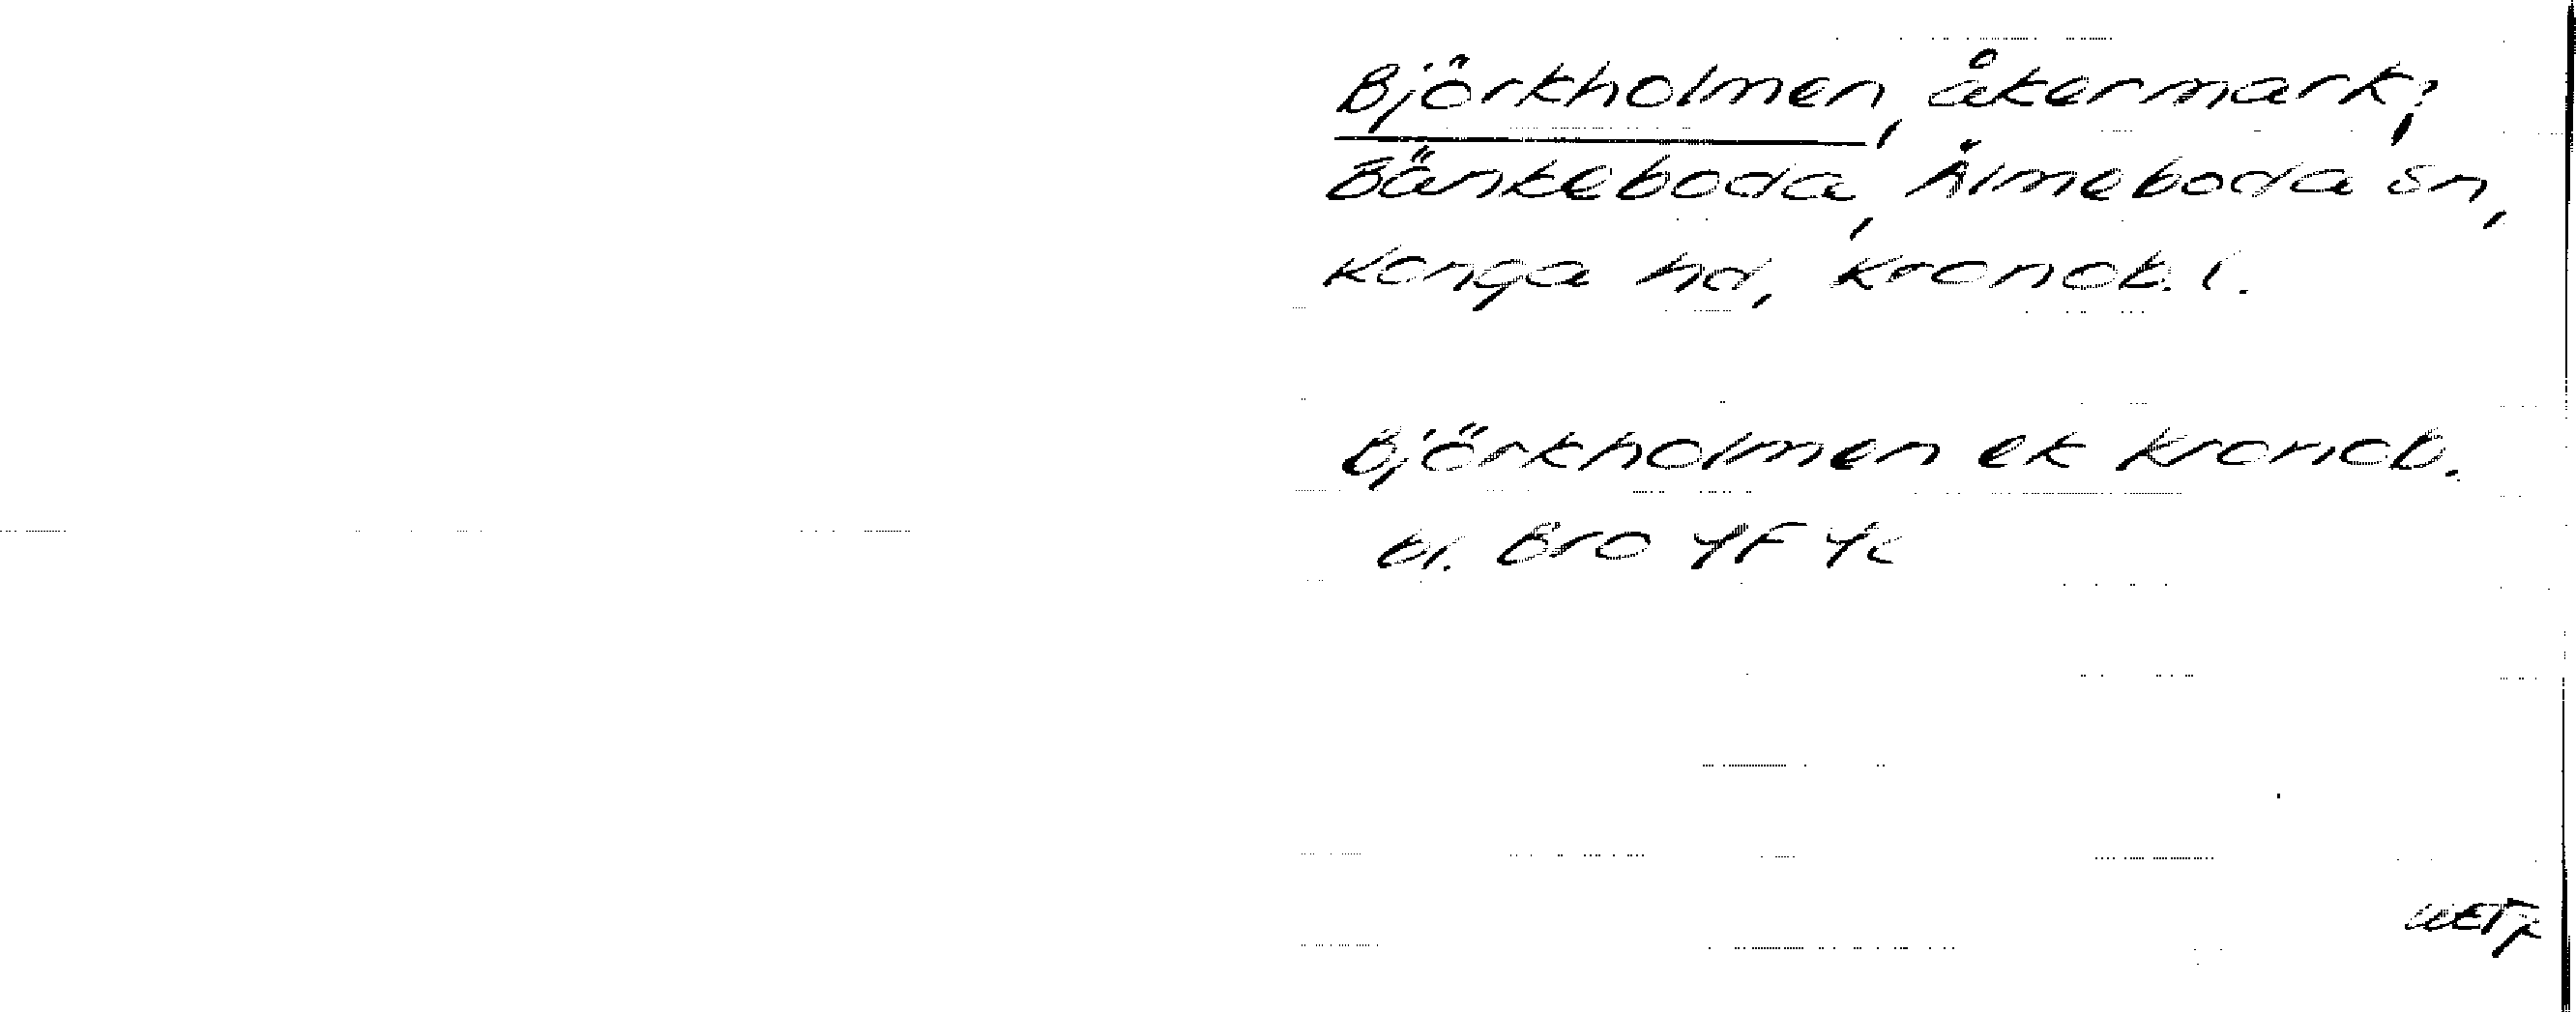 Björkholmen, åkermark,
Bänkeboda, Älmeboda sn,
Konga hd, Kronob. l.
Björkholmen ek Kronob.
bl. Bro 4F 4c